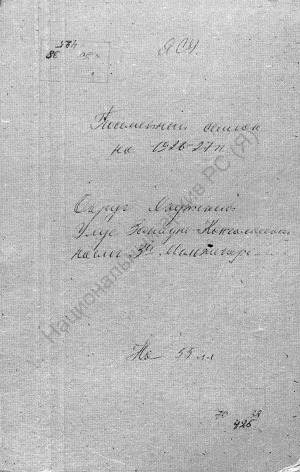 564
ЯСУ
Посемейный список
на 1926-27 г.
Округ Якутский
Улус Западно-Кангаласский
наслег 3й
На 55 лл
70
426
Национальный архив РС (Я)